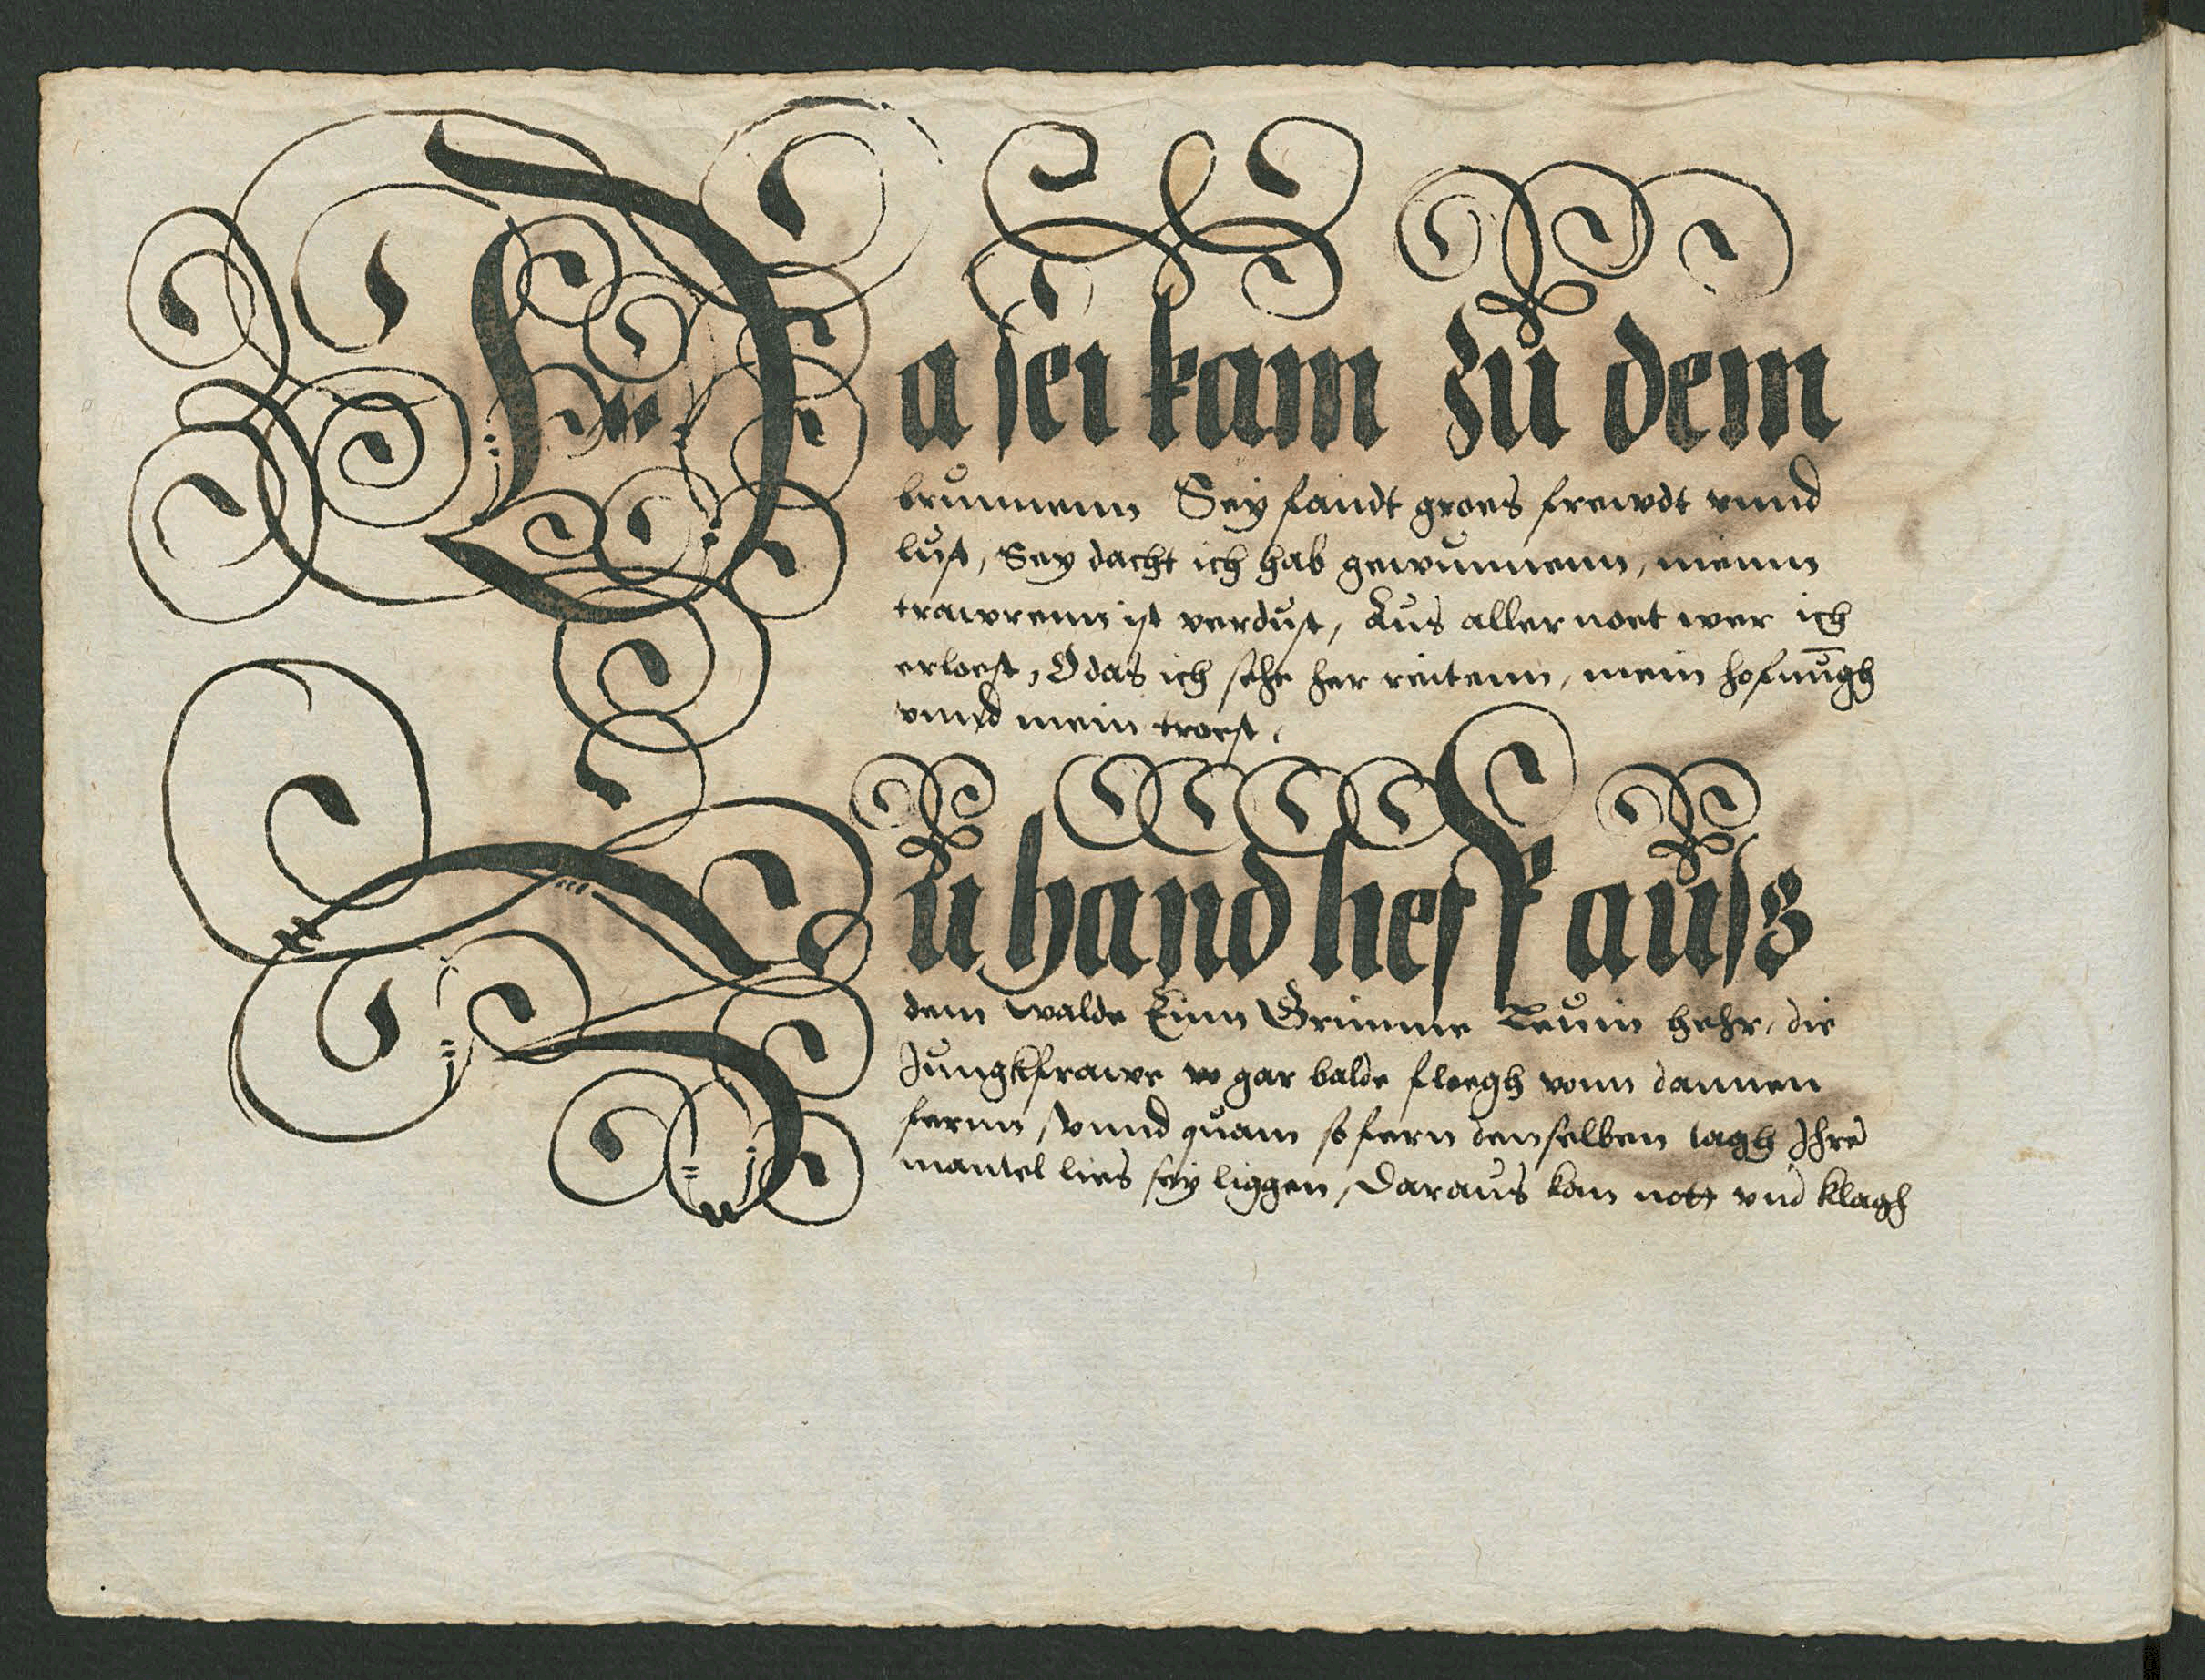 Da sei kam zu dem
brunnenn Sey fandt groes frewdt vnnd
lust, Sey dacht ich hab gewunnenn, meinn
trawrenn ist verdust, Aus aller noet wer ich
erloest, O das ich sehe her reitenn, mein hofnu̅gh
vnnd mein troest,
Zu hand lieff auß
dem walde Einn Grimme Leuin hehr, die
Jungkfrawe gar balde floegh vonn dannen
fernn, vnnd quam so fern denselben tagh Ihre
mantel lies sey liggen, Daraus kam nott vnd klagh